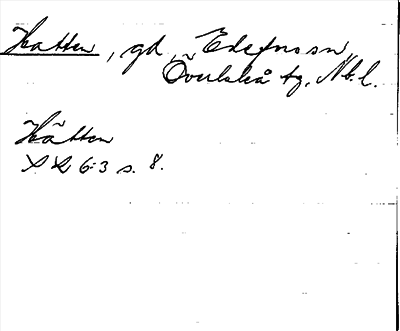 Hatten, gd, Edefors sn,
Överluleå tg, Nb. l.
Hätten
XX 6:3 s. 8.